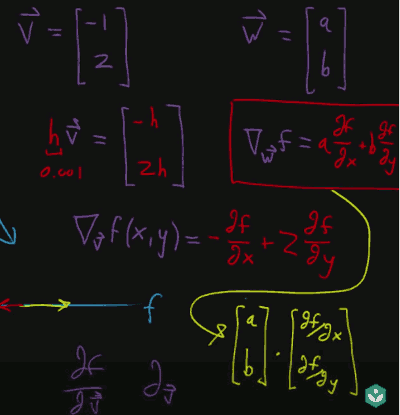 v⃗ = [-1 2]    w⃗ = [a b]
hv⃗ = [-h 2h]    ∇_w⃗ f = a ∂f/∂x + b ∂f/∂y
0.001
∇_v⃗ f(x,y) = -∂f/∂x + 2 ∂f/∂y
f
[a b] · [∂f/∂x ∂f/∂y]
∂f/∂v⃗    ∂_v⃗